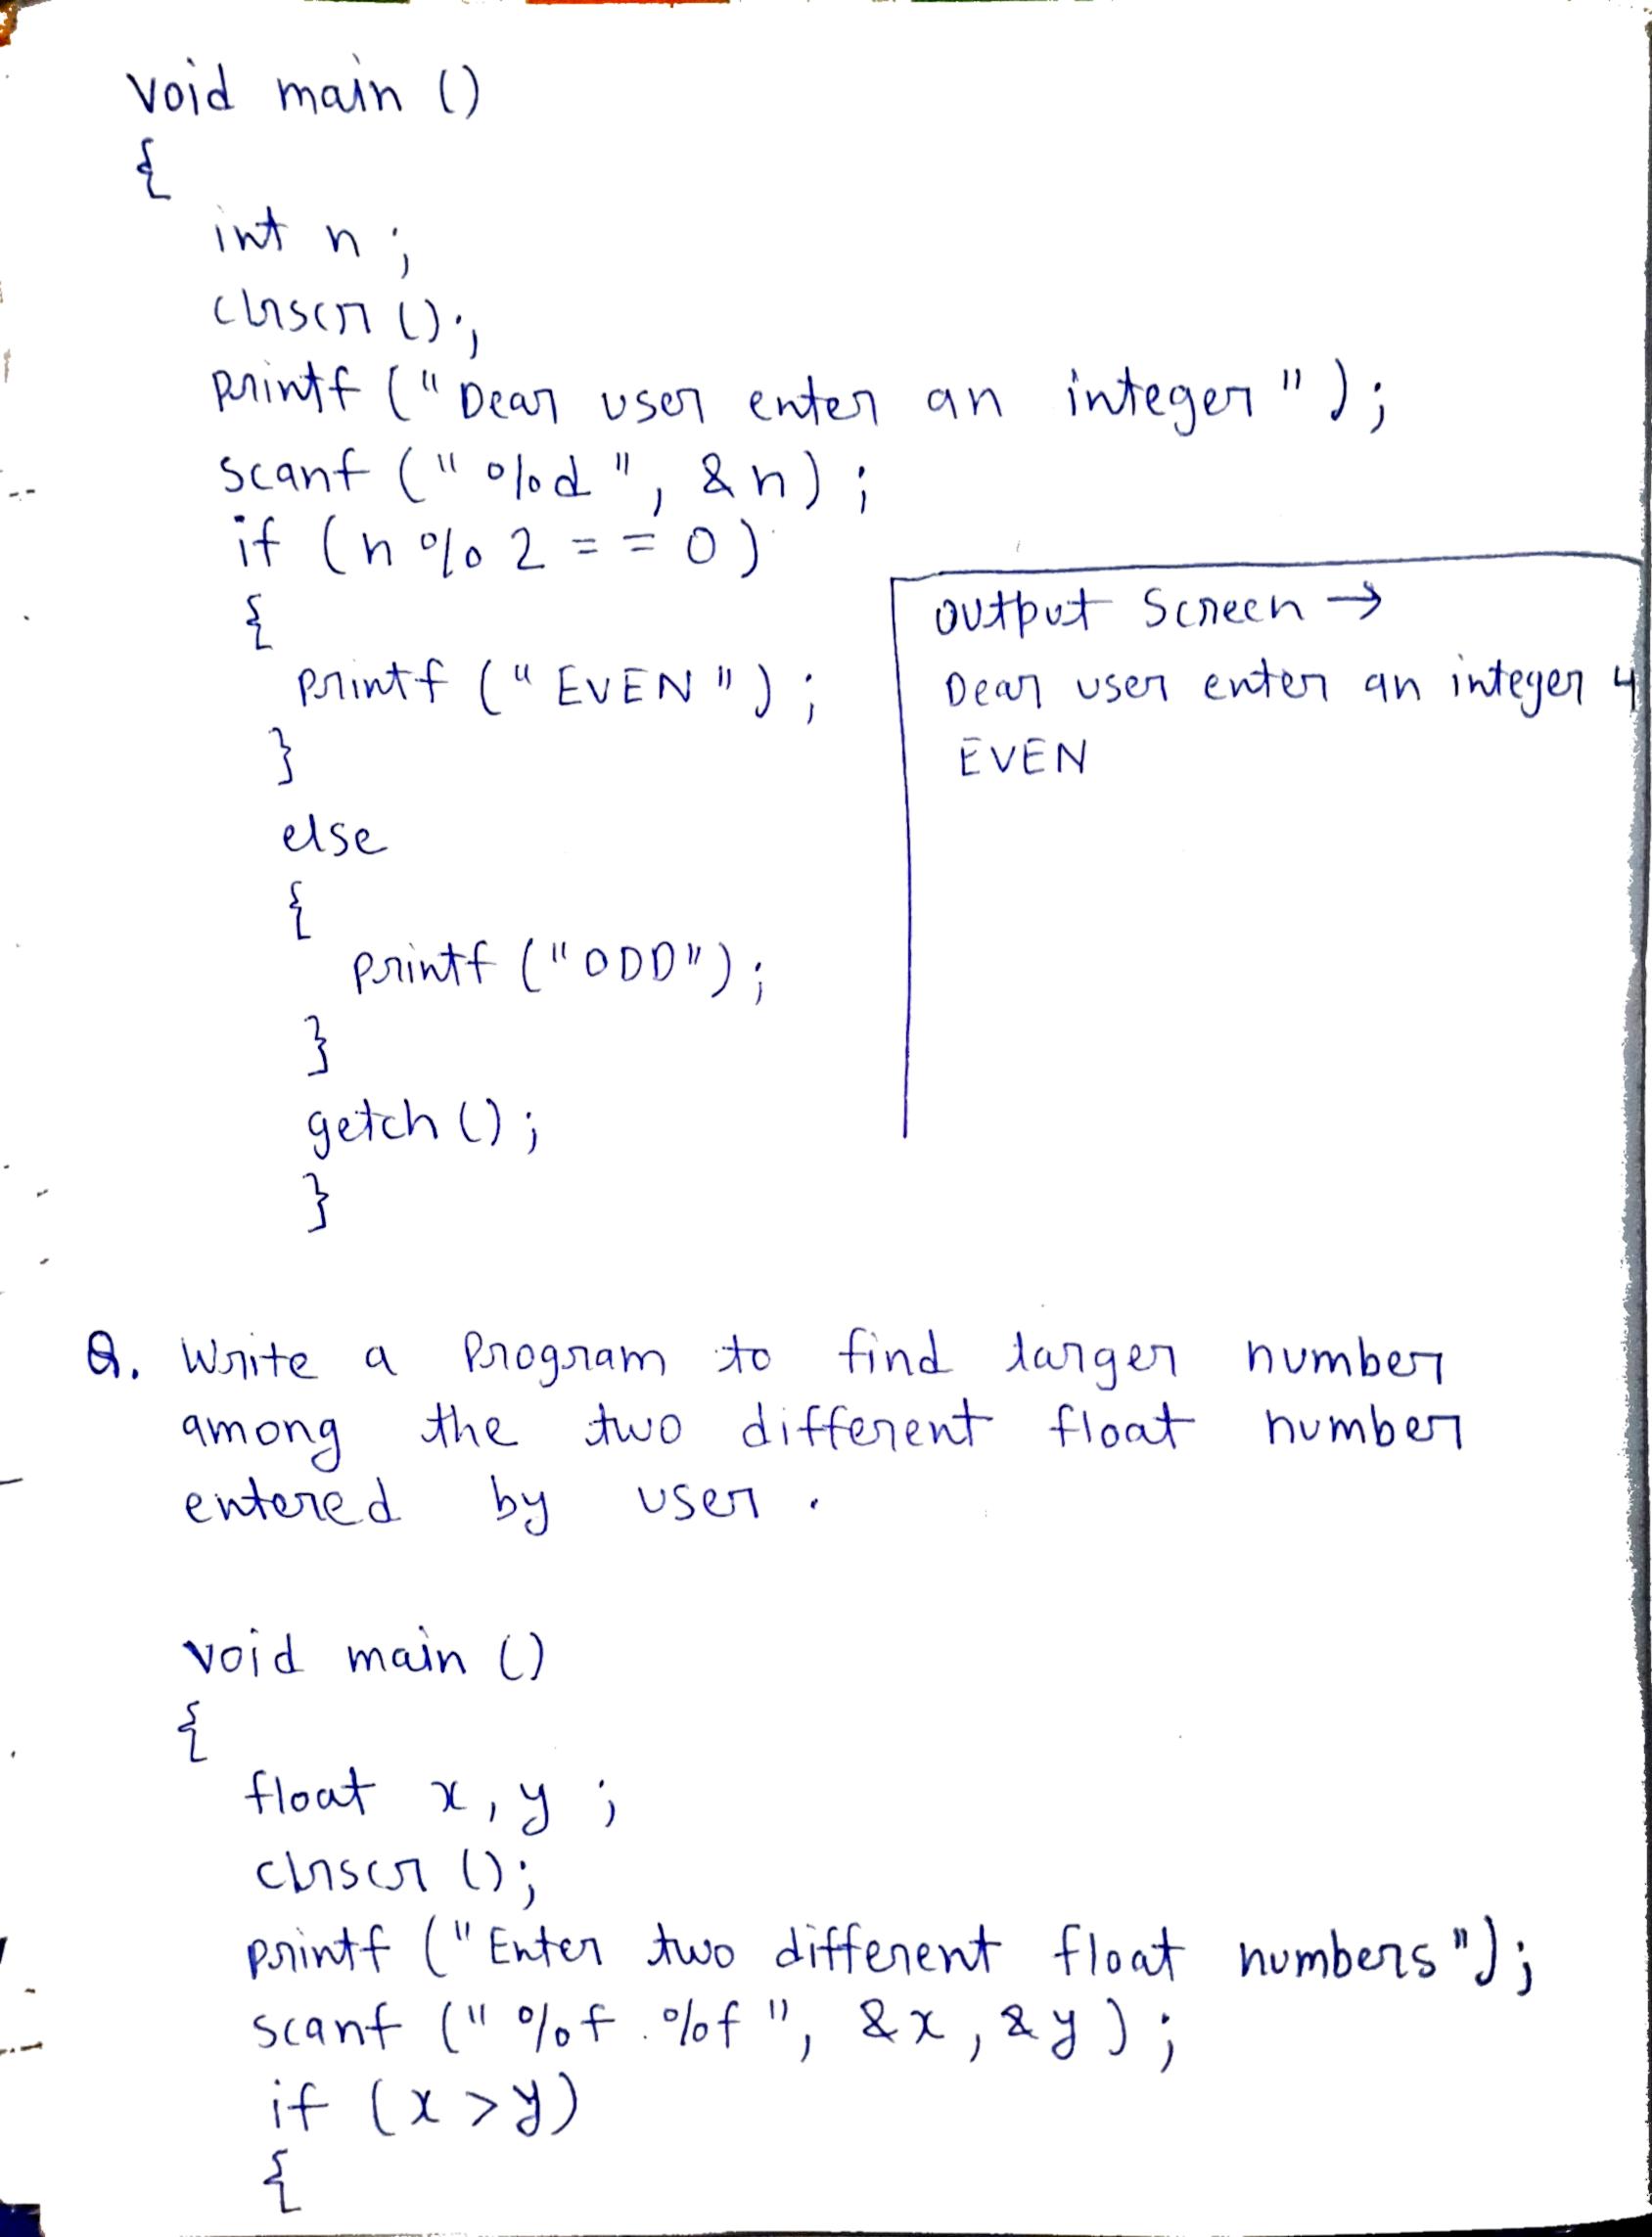 void main ()
{
int n ;
clrscr ();
printf ("Dear user enter an integer");
scanf ("%d", &n) ;
if (n % 2 == 0)
{
printf ("EVEN") ;
}
else
{
printf ("ODD") ;
}
getch () ;
}
Output Screen →
Dear user enter an integer 4
EVEN
Q. Write a Program to find larger number
among the two different float number
entered by user .
void main ()
{
float x, y ;
clrscr ();
printf ("Enter two different float numbers");
scanf ("%f %f", &x, &y) ;
if (x > y)
{